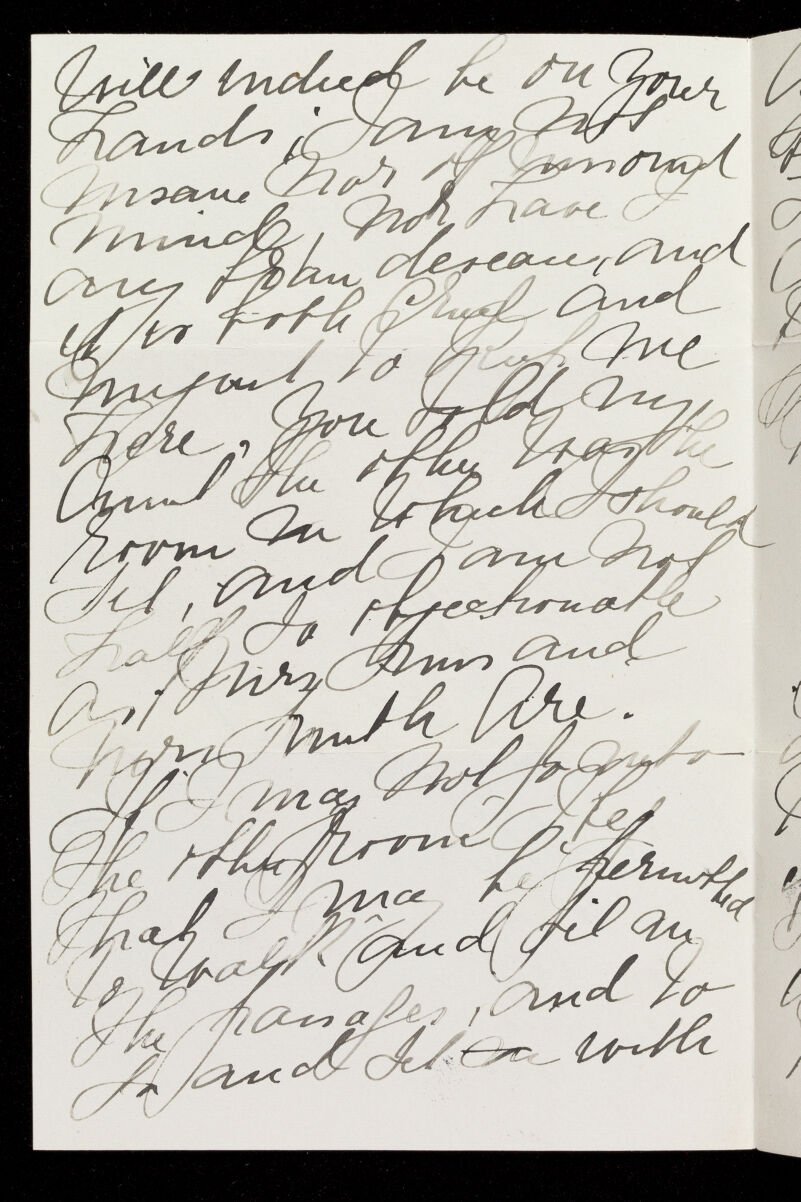 will indeed be on your
hands; I am not
insane nor of unsound
mind, nor have I
any brain disease, and
it is both cruel and
unjust to keep me
here. You told my
Aunt the other was the
room in which I should
sit, and I am not
half so objectionable
as, Mrs and
Mrs Smith are.
If I may not go into
the other room
that I may be permitted
to walk and sit in
the passages, and to
go and sit with